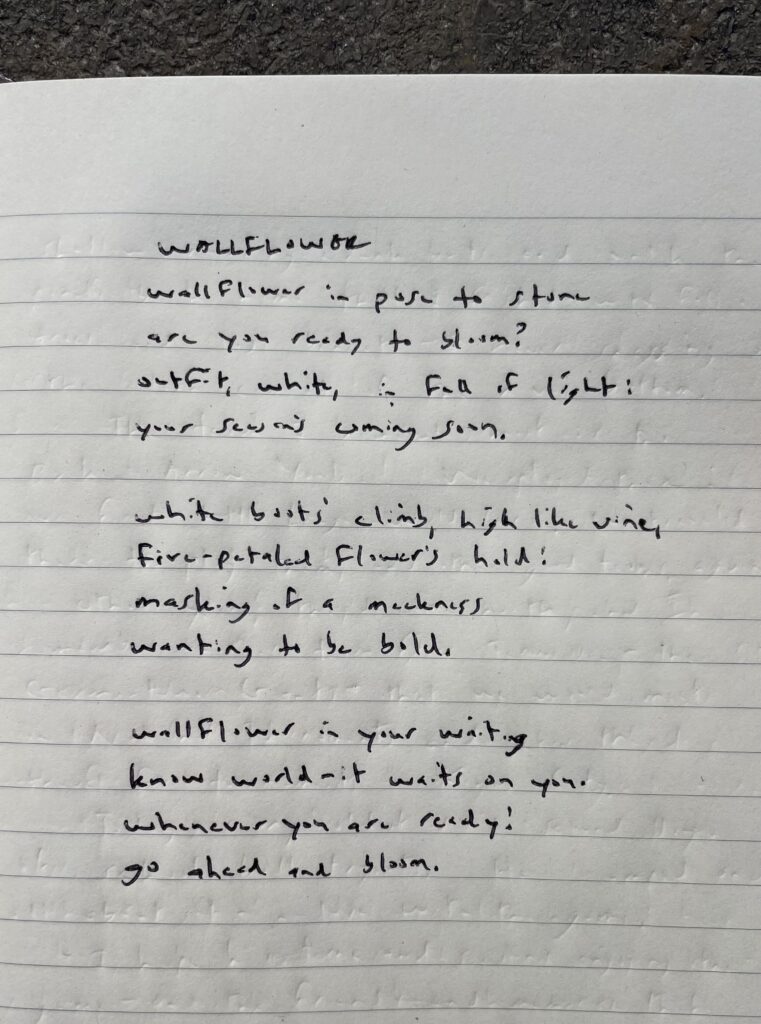 WALLFLOWER
wallflower in pose to stone
are you ready to bloom?
outfit, white, in fall of light:
your season's coming soon.
white boots' climb, high like vine,
five-petaled flower's hold:
masking of a meekness
wanting to be bold.
wallflower in your waiting
know world-it waits on you.
whenever you are ready:
go ahead and bloom.